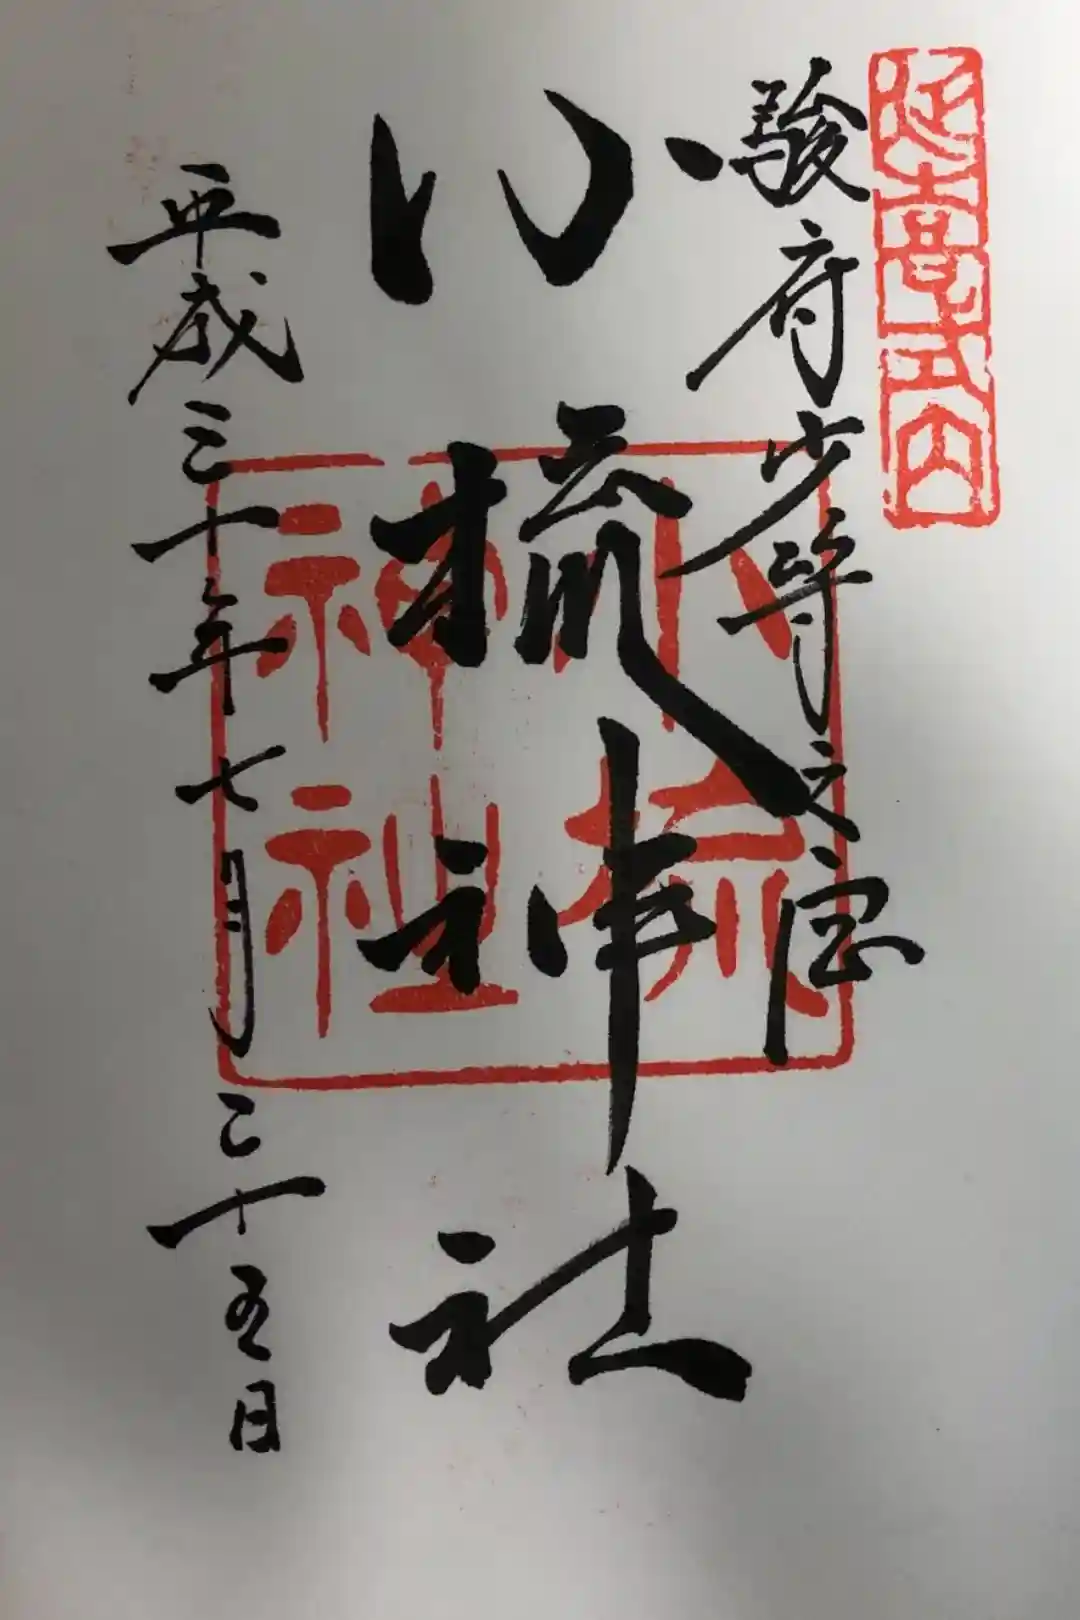 延喜式内
駿府少将之宮
小梳神社
小梳神社
平成三十年七月二十五日